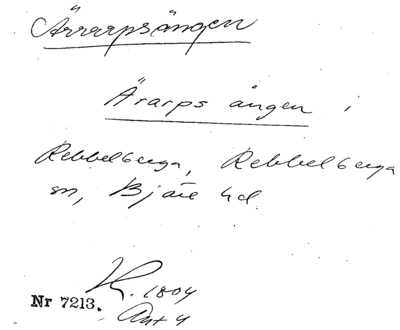 Ärrarpsängen
Ärarps ängen i
Rebbelberga, Rebbelberga
sn, Bjäre hd.
K. 1804
Nr 7213.
Akt 4